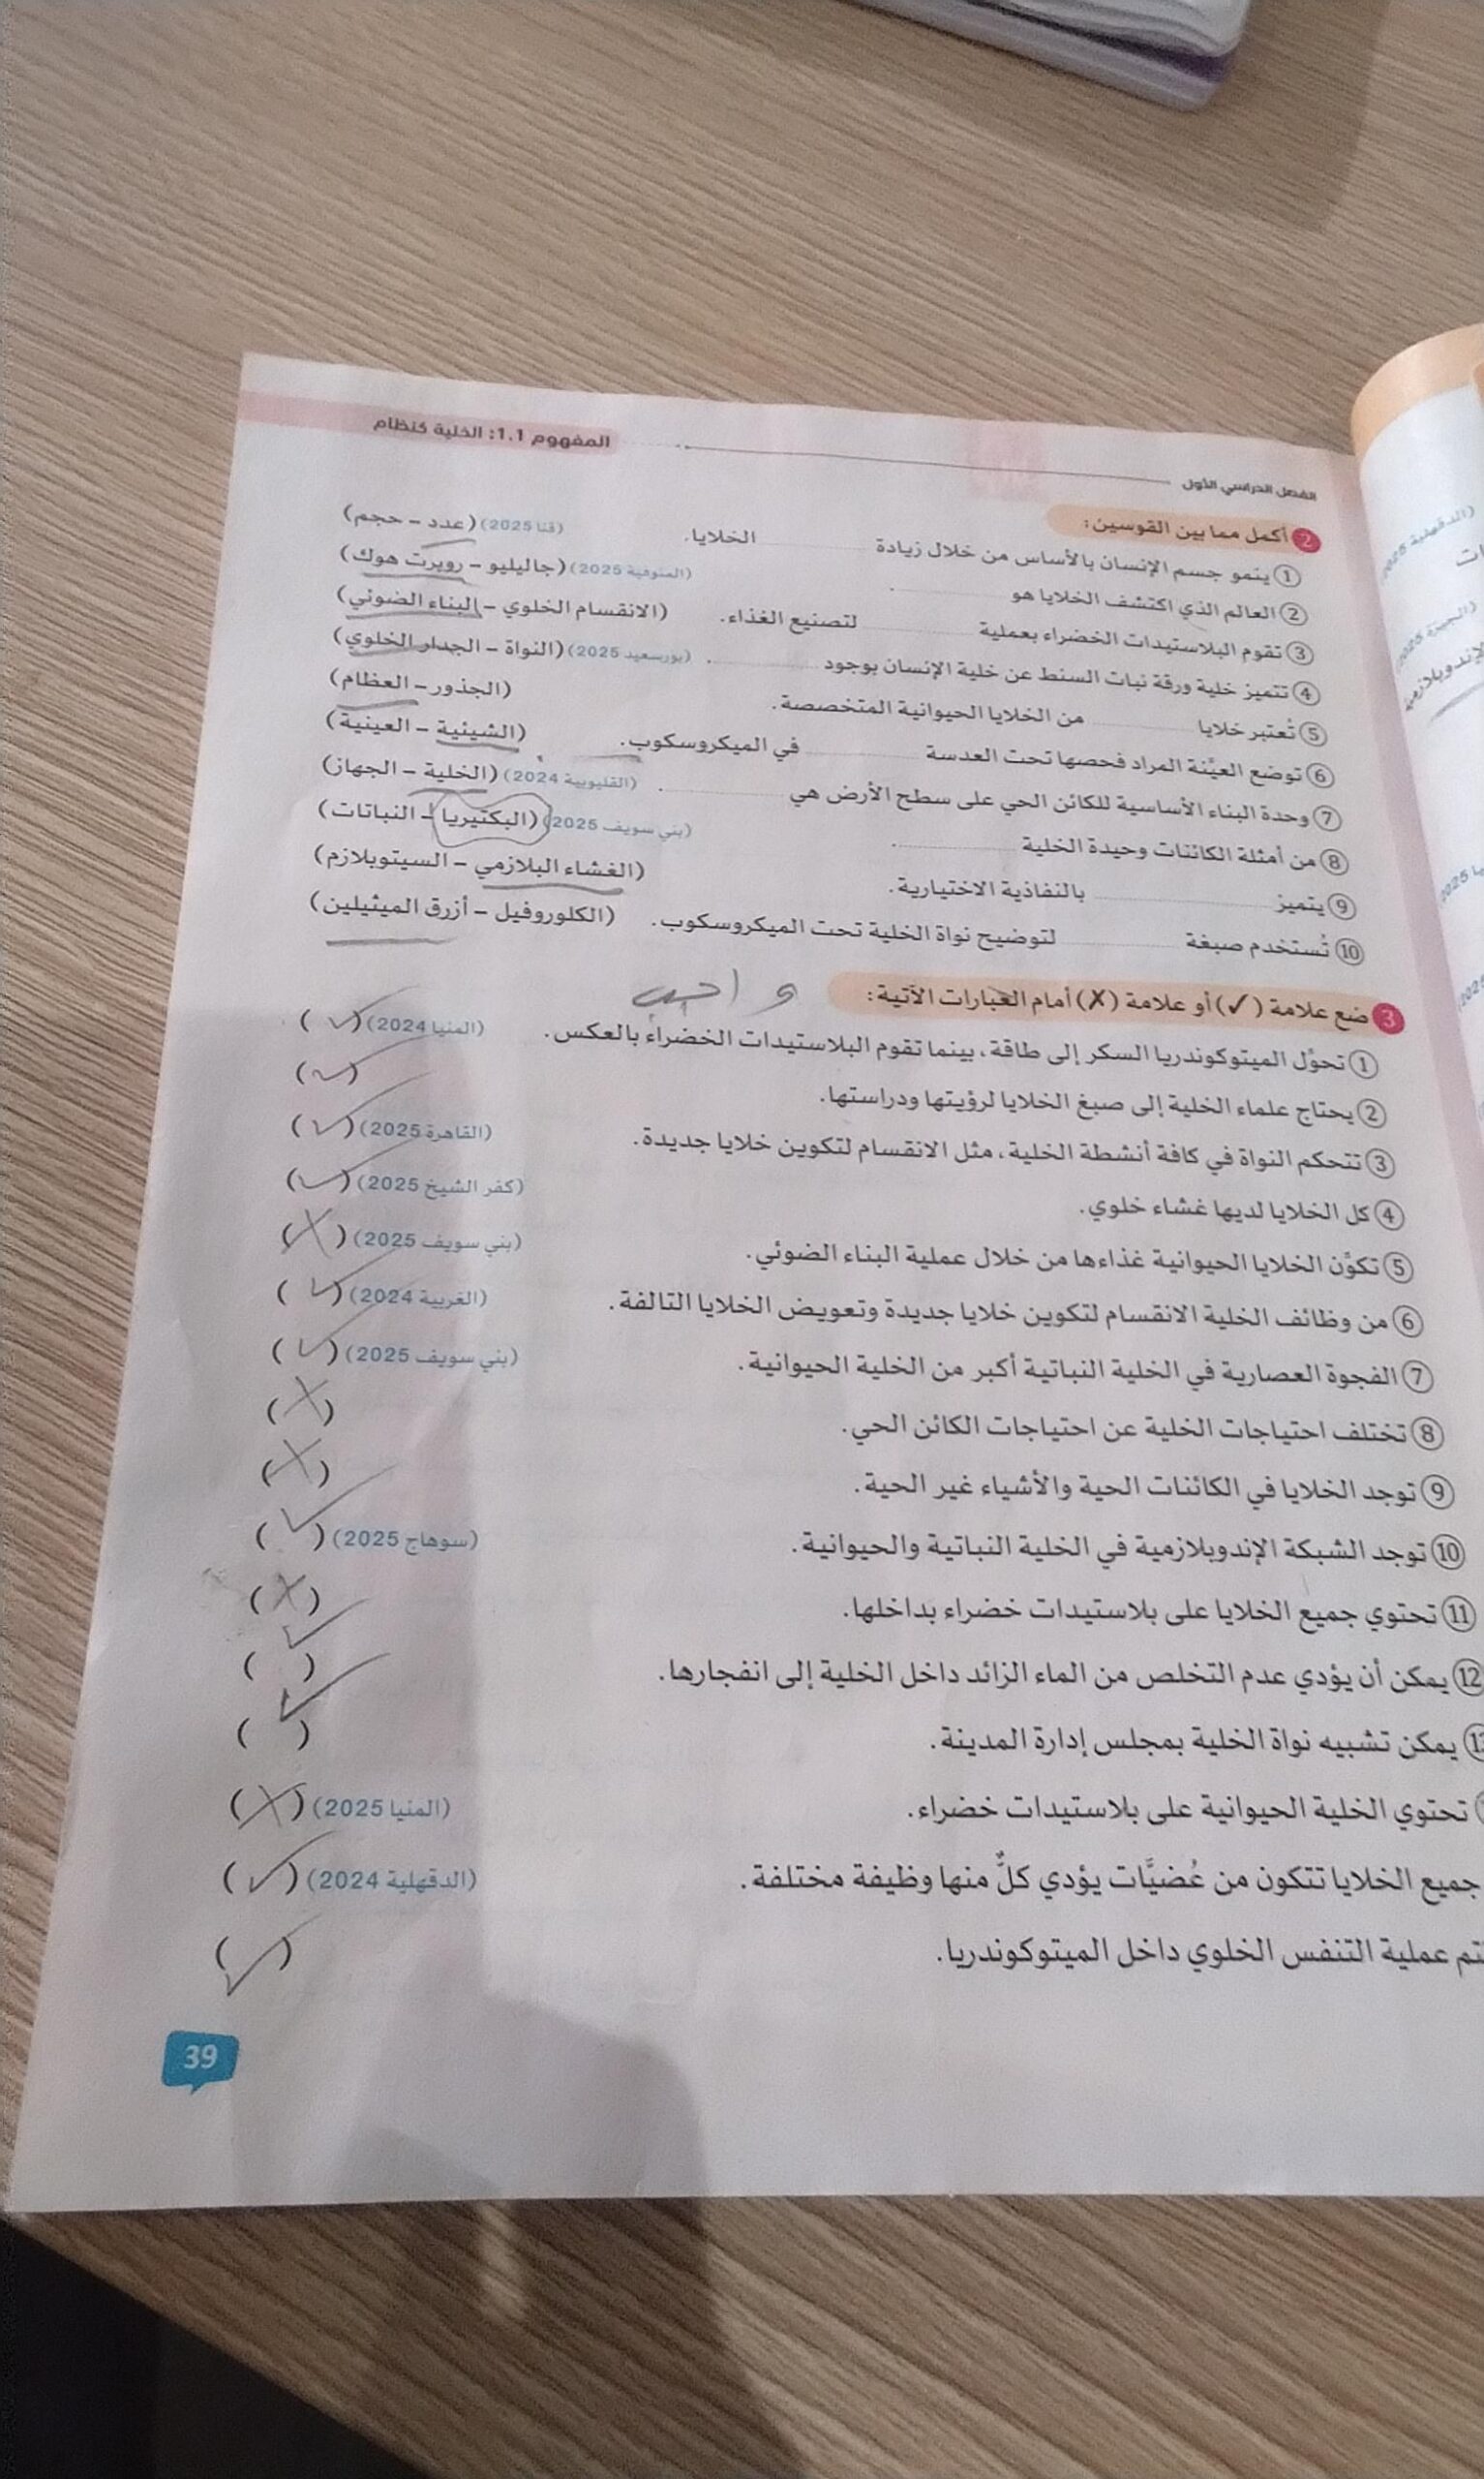 الفصل الدراسي الأول
المفهوم 1.1: الخلية كنظام
2 أكمل مما بين القوسين:
① ينمو جسم الإنسان بالأساس من خلال زيادة ............ الخلايا. (قنا 2025) (عدد – حجم)
② العالم الذي اكتشف الخلايا هو ............. (المنوفية 2025) (جاليليو – روبرت هوك)
③ تقوم البلاستيدات الخضراء بعملية ............ لتصنيع الغذاء. (الانقسام الخلوي – البناء الضوئي)
④ تتميز خلية ورقة نبات السنط عن خلية الإنسان بوجود ............. (بورسعيد 2025) (النواة – الجدار الخلوي)
⑤ تُعتبر خلايا ............ من الخلايا الحيوانية المتخصصة. (الجذور – العظام)
⑥ توضع العيِّنة المراد فحصها تحت العدسة ............ في الميكروسكوب. (الشيئية – العينية)
⑦ وحدة البناء الأساسية للكائن الحي على سطح الأرض هي ............. (القليوبية 2024) (الخلية – الجهاز)
⑧ من أمثلة الكائنات وحيدة الخلية ............. (بني سويف 2025) (البكتيريا – النباتات)
⑨ يتميز ............ بالنفاذية الاختيارية. (الغشاء البلازمي – السيتوبلازم)
⑩ تُستخدم صبغة ............ لتوضيح نواة الخلية تحت الميكروسكوب. (الكلوروفيل – أزرق الميثيلين)
3 ضع علامة (✓) أو علامة (✗) أمام العبارات الآتية: واجب
① تحوِّل الميتوكوندريا السكر إلى طاقة، بينما تقوم البلاستيدات الخضراء بالعكس. (المنيا 2024) (✓)
② يحتاج علماء الخلية إلى صبغ الخلايا لرؤيتها ودراستها. (✓)
③ تتحكم النواة في كافة أنشطة الخلية، مثل الانقسام لتكوين خلايا جديدة. (القاهرة 2025) (✓)
④ كل الخلايا لديها غشاء خلوي. (كفر الشيخ 2025) (✓)
⑤ تكوِّن الخلايا الحيوانية غذاءها من خلال عملية البناء الضوئي. (بني سويف 2025) (✗)
⑥ من وظائف الخلية الانقسام لتكوين خلايا جديدة وتعويض الخلايا التالفة. (الغربية 2024) (✓)
⑦ الفجوة العصارية في الخلية النباتية أكبر من الخلية الحيوانية. (بني سويف 2025) (✓)
⑧ تختلف احتياجات الخلية عن احتياجات الكائن الحي. (✗)
⑨ توجد الخلايا في الكائنات الحية والأشياء غير الحية. (✗)
⑩ توجد الشبكة الإندوبلازمية في الخلية النباتية والحيوانية. (سوهاج 2025) (✓)
⑪ تحتوي جميع الخلايا على بلاستيدات خضراء بداخلها. (✗)
⑫ يمكن أن يؤدي عدم التخلص من الماء الزائد داخل الخلية إلى انفجارها. (✓)
يمكن تشبيه نواة الخلية بمجلس إدارة المدينة. (✓)
تحتوي الخلية الحيوانية على بلاستيدات خضراء. (المنيا 2025) (✗)
جميع الخلايا تتكون من عُضيَّات يؤدي كلٌّ منها وظيفة مختلفة. (الدقهلية 2024) (✓)
تتم عملية التنفس الخلوي داخل الميتوكوندريا. (✓)
39